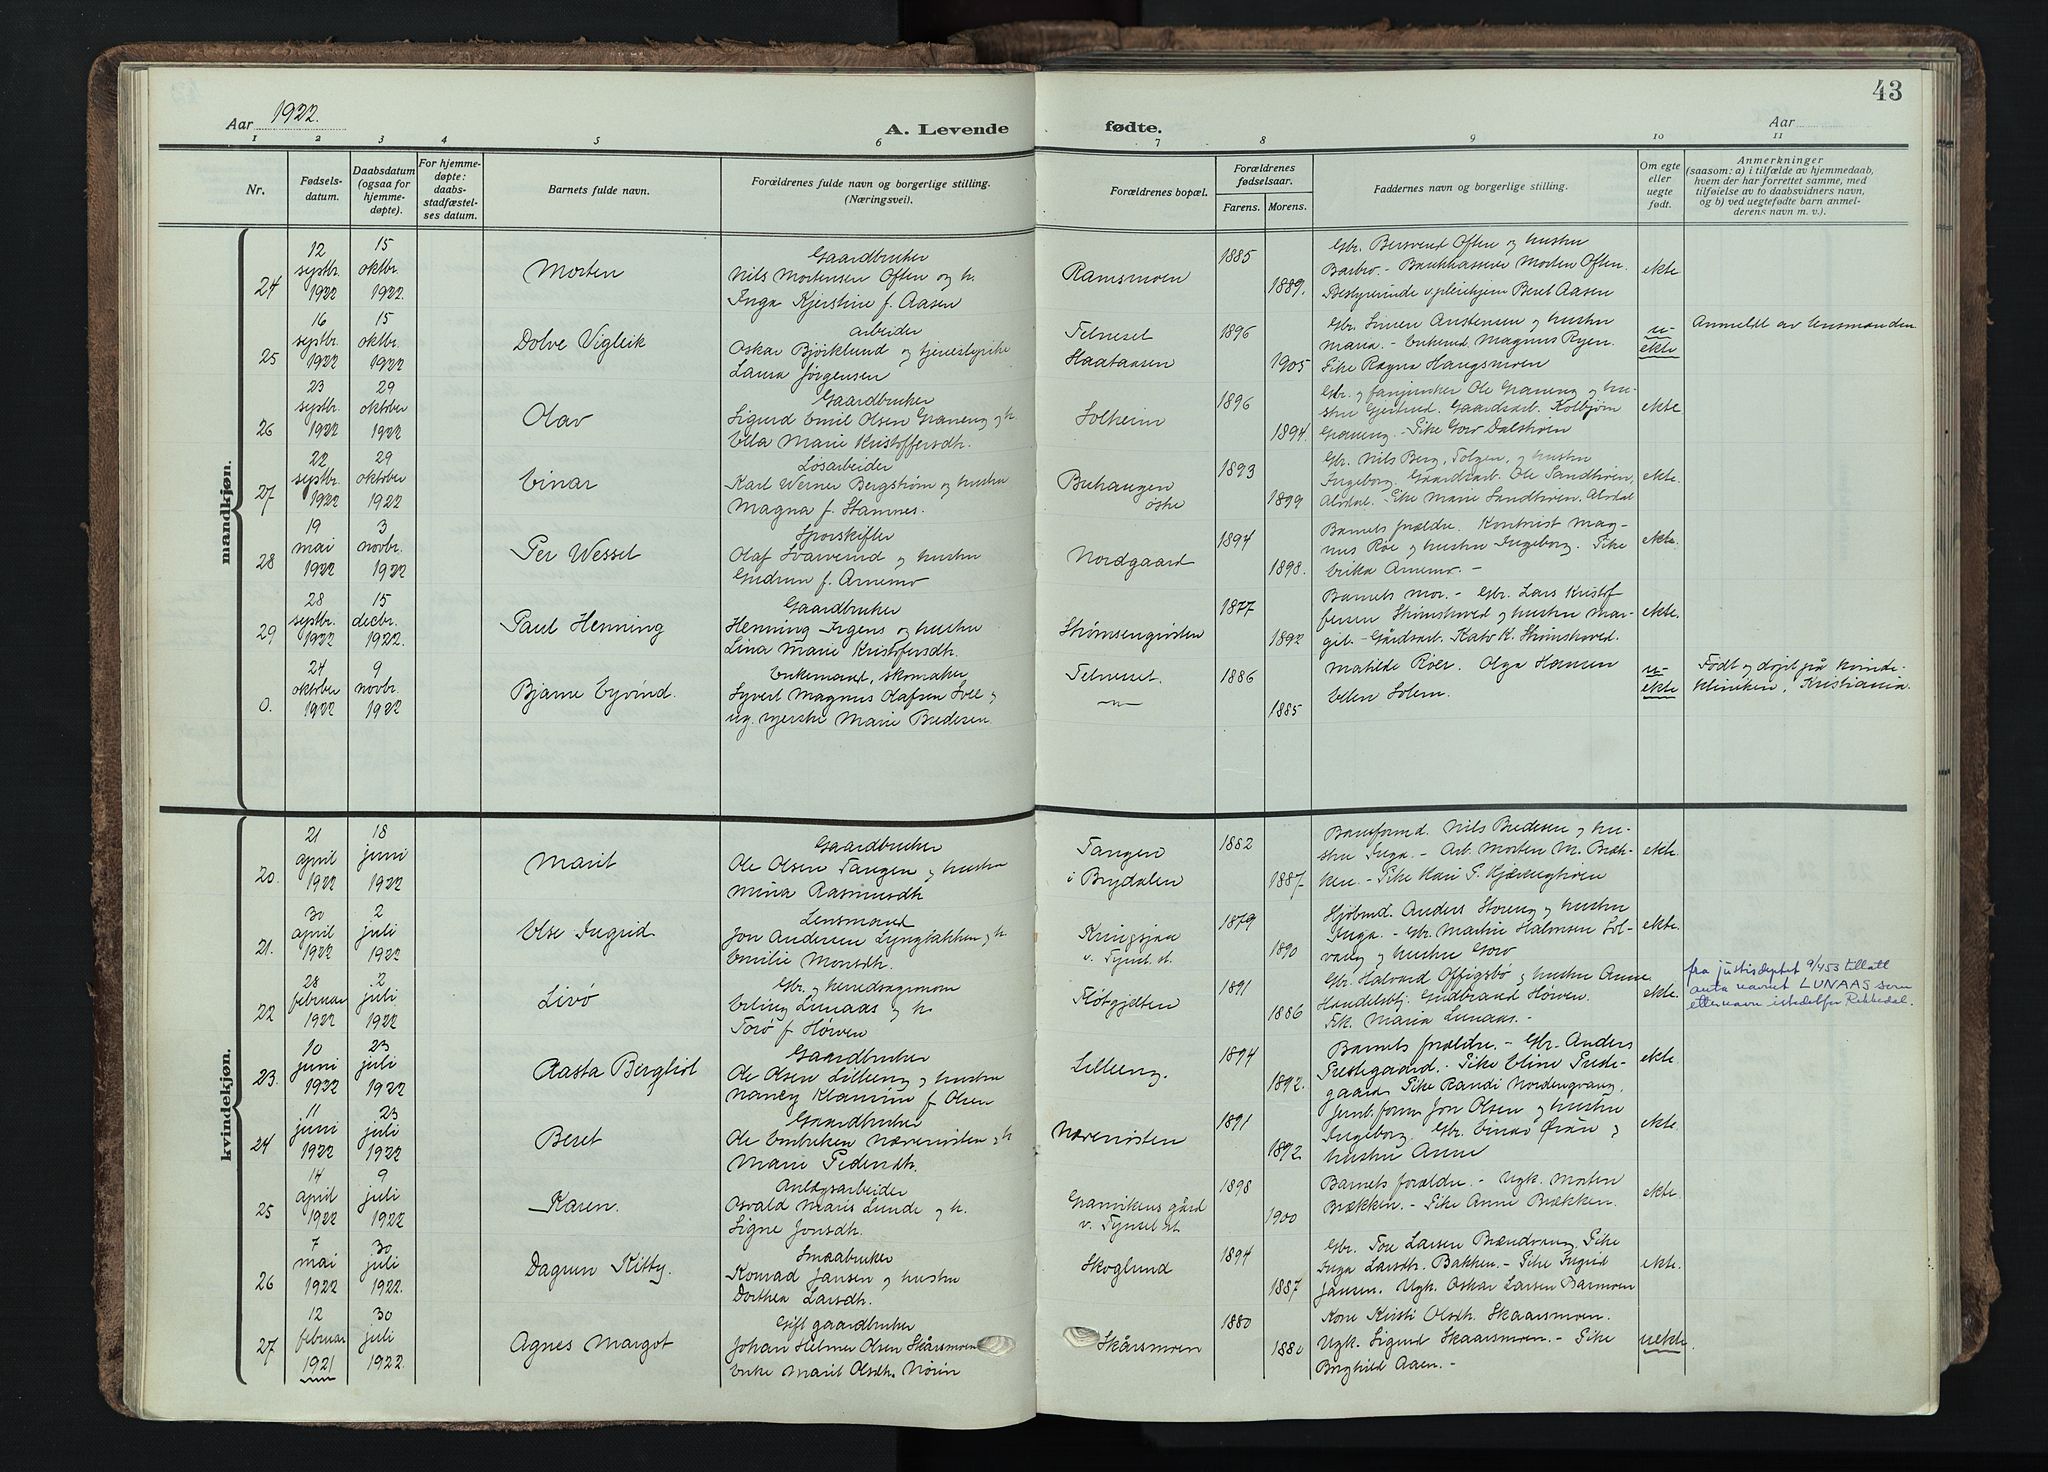 43
Aar 1922.
A. Levende
fødte.
Aar
1 2 3 4 5 6 7 8 9 10 11
Nr.
Fødsels-
datum.
Daabsdatum
(ogsaa for
hjemme-
døpte).
For hjemme-
døpte:
daabs-
stadfæstel-
ses datum.
Barnets fulde navn.
Forældrenes fulde navn og borgerlige stilling.
(Næringsvei).
Forældrenes bopæl.
Forældrenes
fødselsaar.
Farens. Morens.
Faddernes navn og borgerlige stilling.
Om egte
eller
uegte
født.
Anmerkninger
(saasom: a) i tilfælde av hjemmedaab,
hvem der har forrettet samme, med
tilføielse av to daabsvidners navn,
og b) ved uegtefødte barn anmel-
derens navn m. v.).
mandkjøn.
24
12 septbr. 1922
15 oktbr. 1922.
Morten
Gaardbruker
Nils Mortensen Often og h.
Inga Kjerstine f. Aasen
Ramsmoen
1885
1889.
Gbr. Bersvend Often og hustru
Barbro - Bankkasserer Morten Often.
Bestyrerinde v. pleiehjem Beret Aasen
ekte
25
16 septbr. 1922
15 oktbr. 1922
Dolve Vigleik
arbeider
Oskar Bjørklund og tjenestepike
Laura Jørgensen
Telneset
Haataasen
1896
1905
Gbr. Simen Austensen og hustru
Maria. - Enkemd. Magnus Ryen.
Pike Ragna Haugsmoen
u-
ekte
Anmeldt av lensmanden
26
23 septbr. 1922
29 oktober 1922
Olav
Gaardbruker
Sigurd Emil Olsen Graneng og h.
Ella Marie Kristoffersdh.
Solheim
1896
1894.
Gbr. og fanjunker Ole Graneng og hu-
stru Gjertrud. Gaardsarb. Kolbjørn
Graneng. - Pike Goro Dalsmoen
ekte
27
22 septbr. 1922
29 oktober 1922
Einar
Løsarbeider
Karl Werner Bergstrøm og hustru
Magna f. Stamnes.
Bruhaugen
østre
1893
1899
Gbr. Nils Berg, Tolgen, og hustru
Ingeborg. Gaardsarb. Ole Sandtrøen,
Alvdal. - Pike Marie Sandtrøen. Alvdal
ekte.
28
19 mai 1922
3 novbr. 1922
Per Wessel
Sporskifter
Olaf Svarverud og hustru
Gudrun f. Arnemo
Nordgaard
1894
1898.
Barnets forældre. Kontorist Mag-
nus Røe og hustru Ingeborg. Pike
Erika Arnemo. -
ekte.
29
28 septbr. 1922
15 decbr. 1922.
Paul Henning
Gaardbruker
Henning Irgens og hustru
Lina Marie Kristoffersdh.
Strømsengkvisten
1877
1892
Barnets mor. - Gbr. Lars Kristof
fersen Strømshoved og hustru Mar-
git. - Gårdsarb. Kato K. Strømshoved.
ekte.
0.
24 oktober 1922
9 novbr. 1922
Bjarne Eyvind.
Enkemand, skomaker
Syvert Magnus Olafsen Soll og
ug. syerske Marie Bredesen.
Telneset.
1886
1885
Matilde Roer. Olga Hansen
Ellen Solem.
u-
ekte
Født og døpt på kvinde-
kliniken, Kristiania.
kvindekjøn.
20.
21 april 1922
18 juni 1922
Marit
Gaardbruker
Ole Olsen Tangen og hustru
Mina Rasmusdh
Tangen
i Brydalen
1882
1887.
Baneformd. Nils Bredesen og hu-
stru Inga. - Arb. Morten M. Bræk-
ken. - Pike Hari P. Kjærnghøen
ekte.
21.
30 april 1922
2 juli 1922
Else Ingrid
Lensmand
Jon Andersen Lyngbakken og h.
Emilie Monsdh.
Kringsjaa
v. Tynset st.
1879
1890
Hjulmd. Anders Storeng og hustru
Inga. - Gbr. Martin Halvorsen Sol-
vang og hustru Goro
ekte.
22
28 februar 1922
2 juli 1922
Livø
Gbr. og herredsagronom
Erling Lunaas og h.
Torø f. Hørven
Fløtgjelten
1891
1886
Gbr. Halvard Offigsbø og hustru Anne
Handelsbtj. Gudbrand Hørven.
Frk. Maria Lunaas. -
ekte.
fra justisdeptet 9/4 53 tillatt
anta navnet LUNAAS som
etternavn istedetfor Rekkedal.
23.
10 juni 1922
23 juli 1922
Aasta Bergliot
Gaardbruker
Ole Olsen Lilleeng og hustru
Nancy Klausine f. Olsen
Lilleeng.
1894
1892.
Barnets forældre. - Gbr. Anders
Prestegaard. - Pike Eline Preste-
gaard. Pike Randi Nordengvang.
ekte.
24
11 juni 1922
23 juli 1922
Beret
Gaardbruker
Ole Embriksen Nærenøsten og h
Marie Pedersdh.
Nærenøsten
1891
1892
Jernb. form. Jon Olsen og hustru
Ingeborg. Gbr. Einar Øran og
hustru Anne
ekte.
25
14 april 1922
9 juli 1922
Karen.
Anlægsarbeider
Osvald Maris Lunde og h.
Signe Jonsdh.
Granvikens gård
v. Tynset st.
1898
1900
Barnets forældre. - Ugk. Morten
Brækken. - Pike Anne Brækken.
ekte.
26
7 mai 1922
30 juli 1922.
Dagrun Kitty.
Smaabruker
Konrad Jansen og hustru
Dorthea Larsdh.
Skoglund
1894
1887
Gbr. Tore Larsen Brændvang. Pike
Inga Larsdh. Bakken. - Pike Ingrid
Jansen. Ugk. Oskar Larsen Barmoen
ekte.
27
12 februar 1921
30 juli 1922.
Agnes Margot
Gift gaardbruker
Johan Helmer Olsen Skårsmoen
Enke Marit Olsdh. Nøren
Skårsmoen
1880
1880
Kone Kirsti Olsdh. Skaarsmoen.
Ugk. Sigurd Skaarsmoen. - Pike
Borghild Aaen. -
uekte.